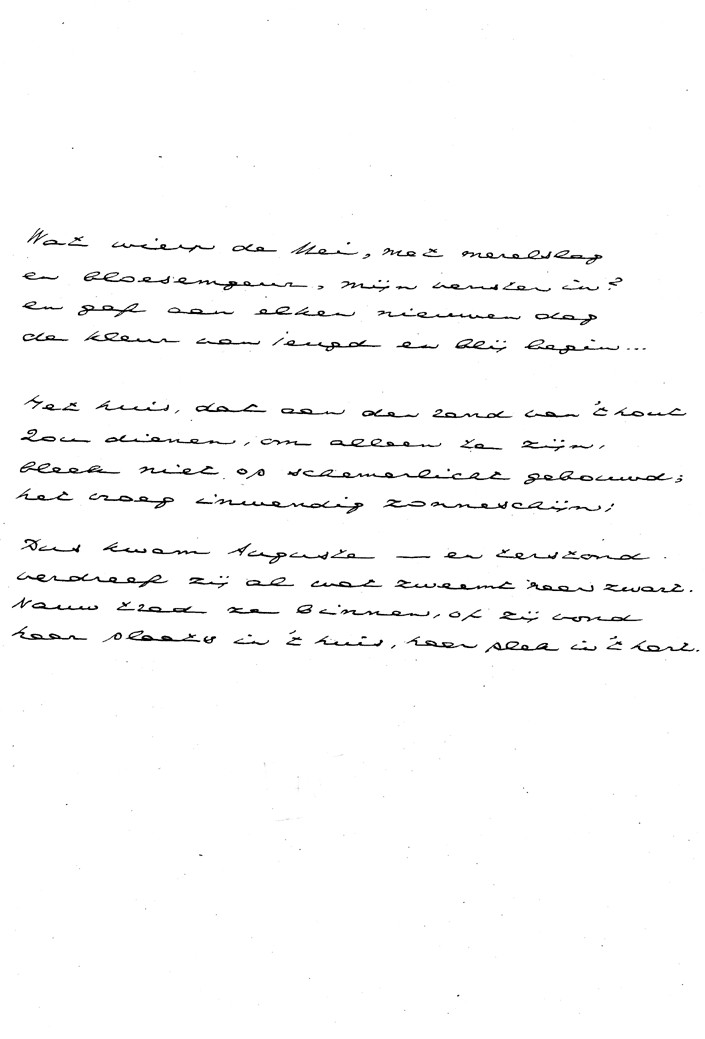 Wat wierp de Mei, met merelslag
en bloesemgeur, mijn venster in?
en gaf aan elken nieuwen dag
de kleur van jeugd en blij begin...
Het huis, dat aan den rand van 't hout
zou dienen, om alleen te zijn,
bleek niet op schemerlicht gebouwd;
het vroeg inwendig zonneschijn;
Dus kwam Auguste — en terstond
verdreef zij al wat zweemt naar zwart.
Nauw trad ze binnen, of zij vond
haar plaats in 't huis, haar plek in 't hart.